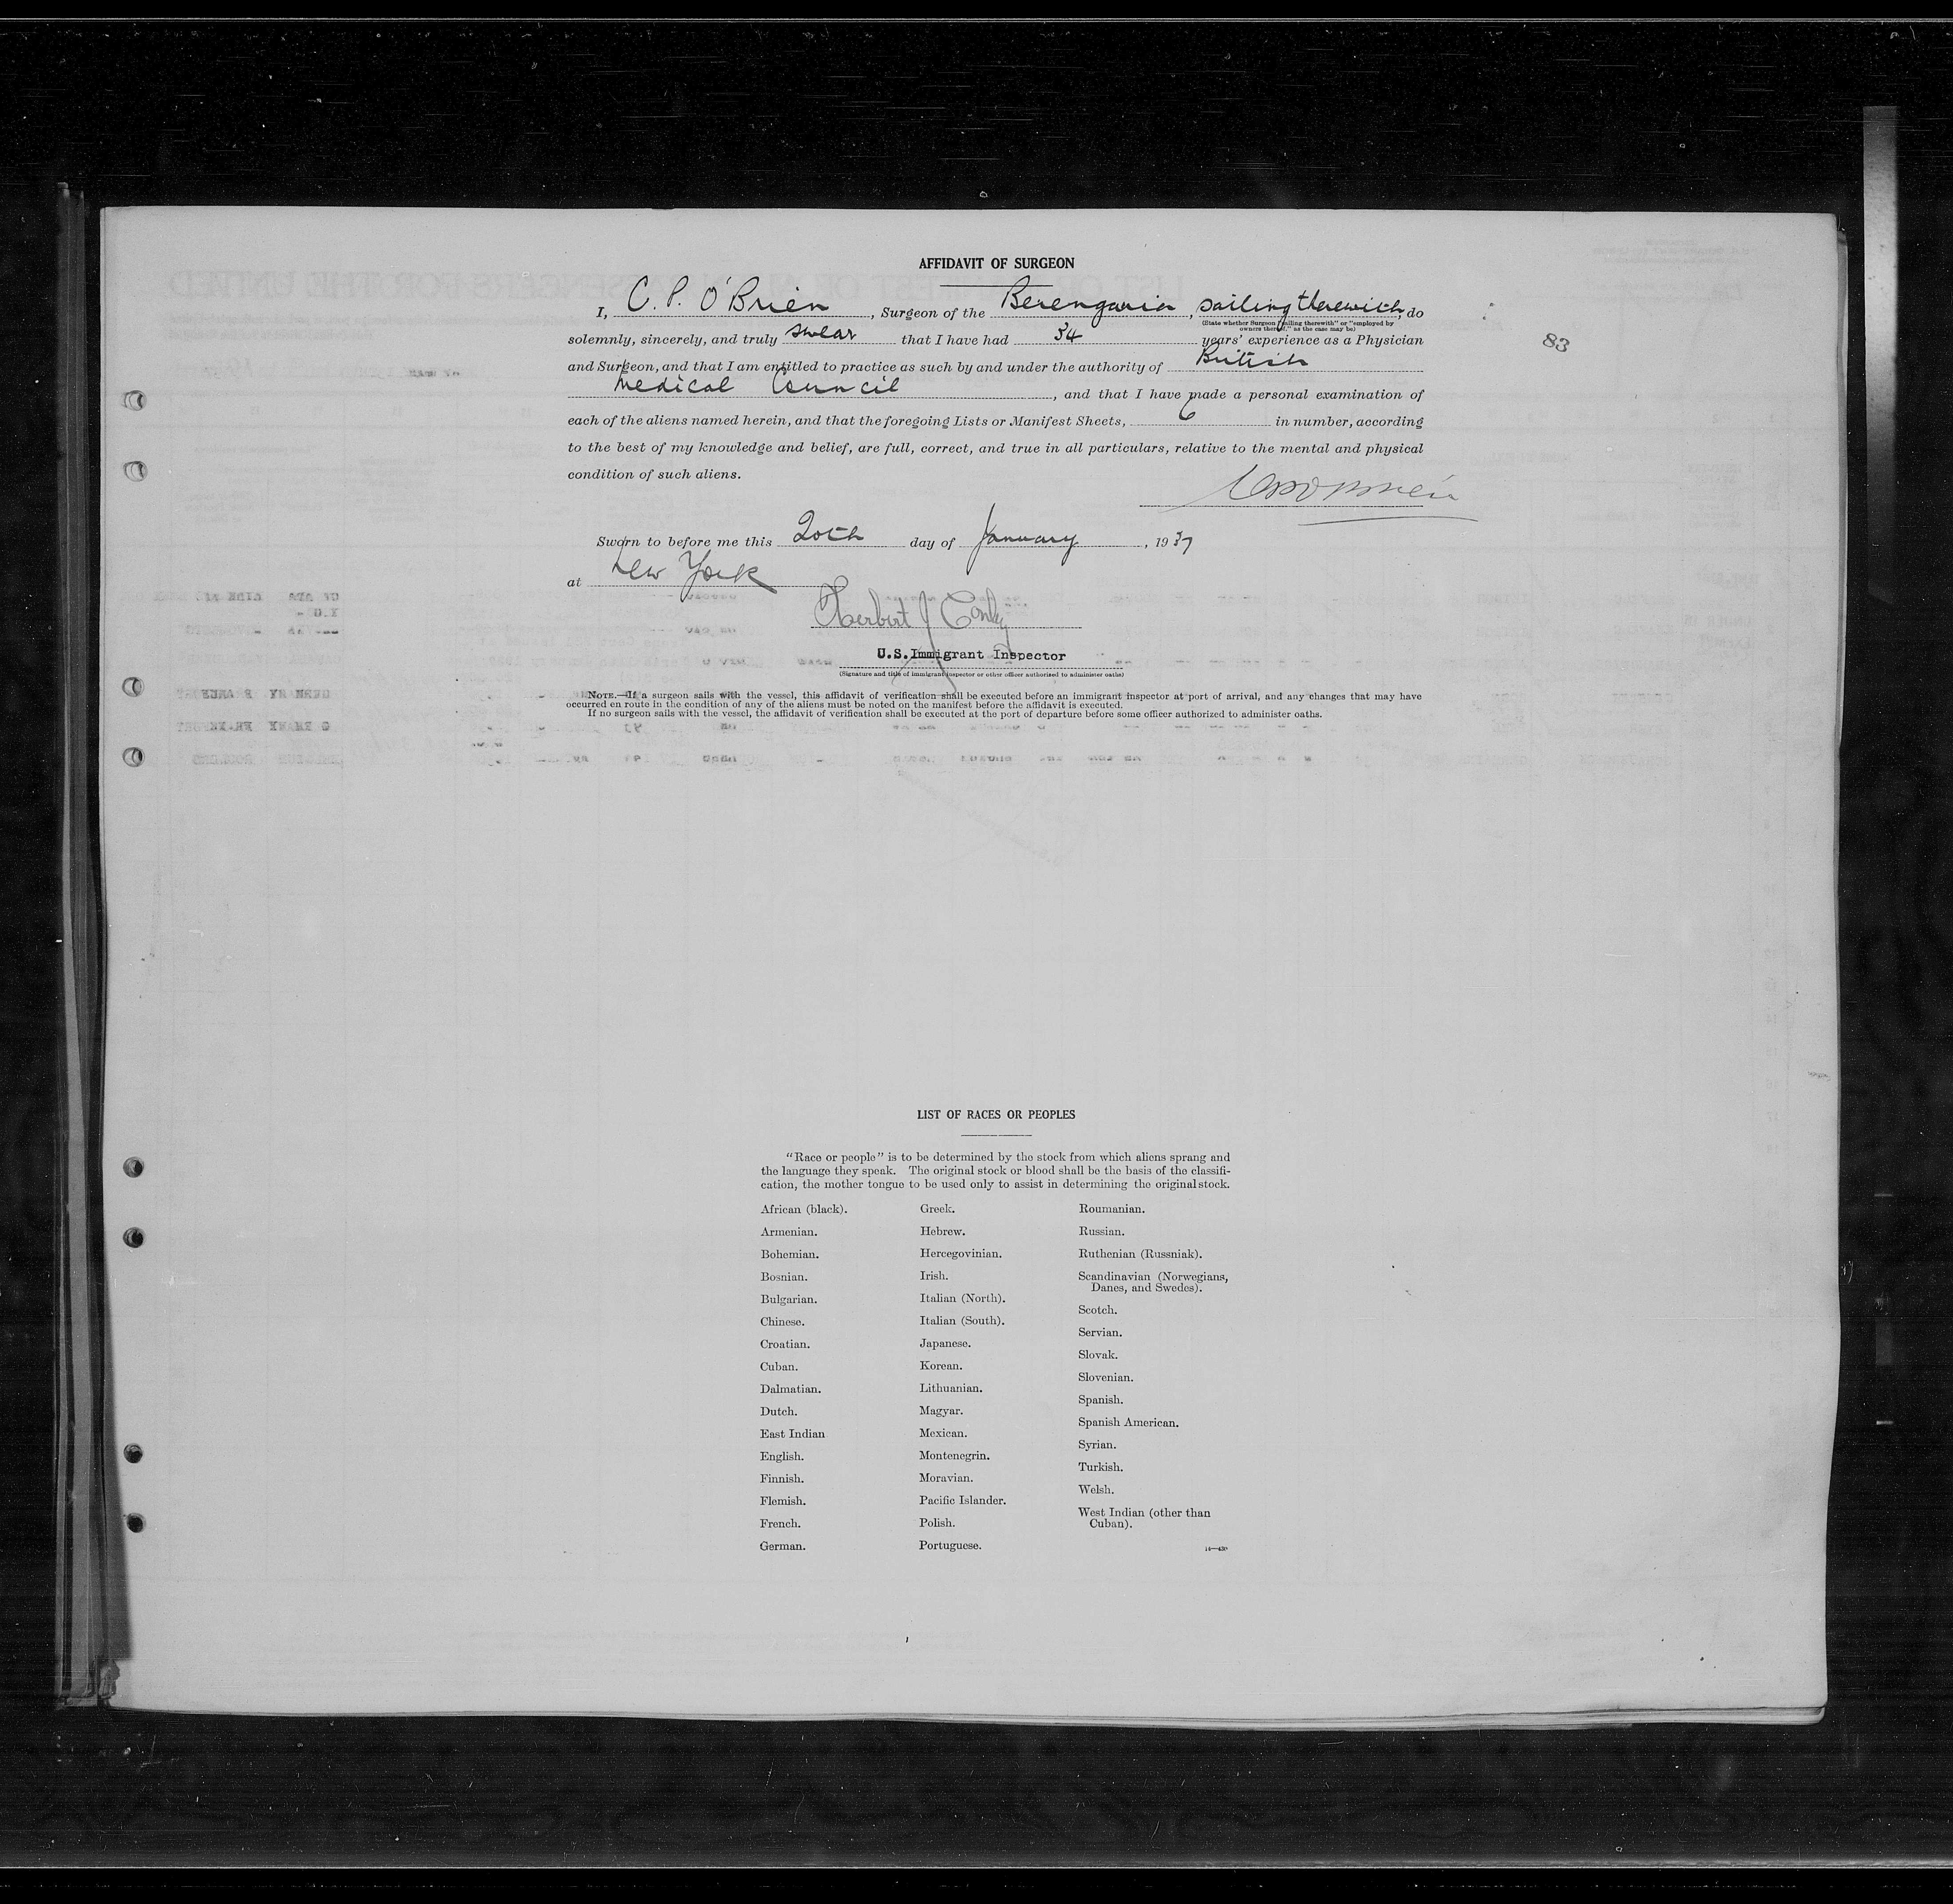 AFFIDAVIT OF SURGEON
I, C. P. O'Brien, Surgeon of the Berengaria, sailing therewith, do
(State whether Surgeon "sailing therewith" or "employed by
owners thereof," as the case may be)
solemnly, sincerely, and truly swear that I have had 34 years' experience as a Physician
and Surgeon, and that I am entitled to practice as such by and under the authority of British
Medical Council, and that I have made a personal examination of
each of the aliens named herein, and that the foregoing Lists or Manifest Sheets, 6 in number, according
to the best of my knowledge and belief, are full, correct, and true in all particulars, relative to the mental and physical
condition of such aliens.
Sworn to before me this 20th day of January, 1937
at New York
Herbert J Conley
U.S.Immigrant Inspector
(Signature and title of immigrant inspector or other officer authorized to administer oaths)
NOTE.—If a surgeon sails with the vessel, this affidavit of verification shall be executed before an immigrant inspector at port of arrival, and any changes that may have
occurred en route in the condition of any of the aliens must be noted on the manifest before the affidavit is executed.
If no surgeon sails with the vessel, the affidavit of verification shall be executed at the port of departure before some officer authorized to administer oaths.
83
LIST OF RACES OR PEOPLES
"Race or people" is to be determined by the stock from which aliens sprang and
the language they speak. The original stock or blood shall be the basis of the classifi-
cation, the mother tongue to be used only to assist in determining the original stock.
African (black).
Armenian.
Bohemian.
Bosnian.
Bulgarian.
Chinese.
Croatian.
Cuban.
Dalmatian.
Dutch.
East Indian
English.
Finnish.
Flemish.
French.
German.
Greek.
Hebrew.
Hercegovinian.
Irish.
Italian (North).
Italian (South).
Japanese.
Korean.
Lithuanian.
Magyar.
Mexican.
Montenegrin.
Moravian.
Pacific Islander.
Polish.
Portuguese.
Roumanian.
Russian.
Ruthenian (Russniak).
Scandinavian (Norwegians,
Danes, and Swedes).
Scotch.
Servian.
Slovak.
Slovenian.
Spanish.
Spanish American.
Syrian.
Turkish.
Welsh.
West Indian (other than
Cuban).